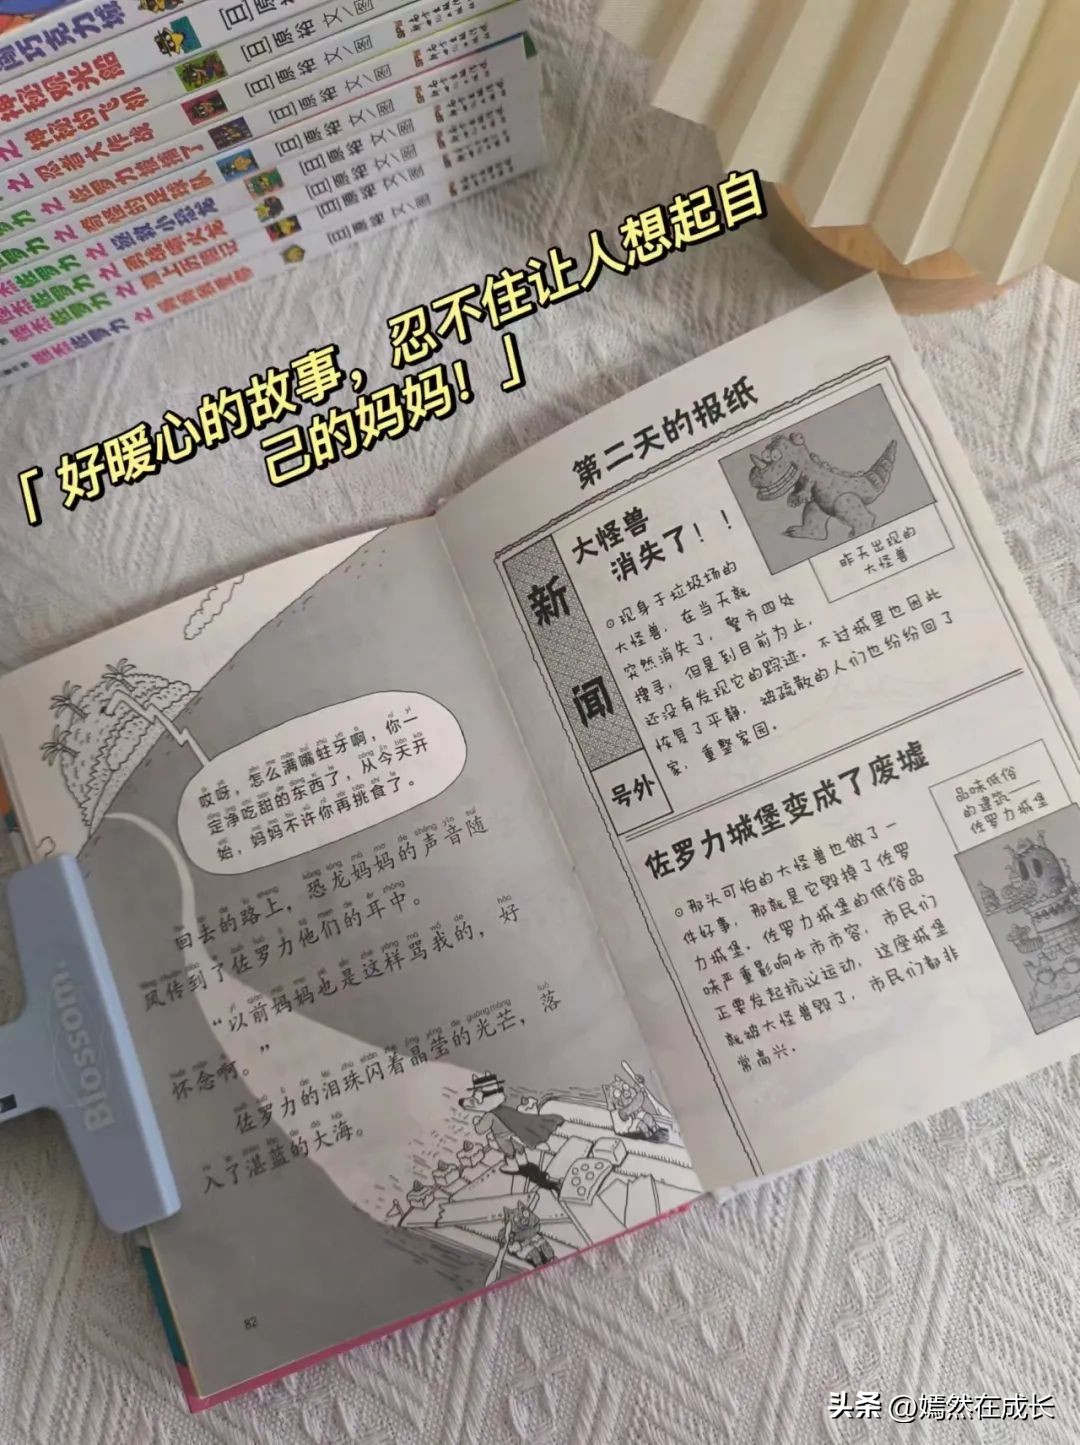 [日]原裕 文/图
[日]原裕 文/图
[日]原裕 文/图
[日]原裕 文/图
[日]原裕 文/图
[日]原裕 文/图
[日]原裕 文/图
巧克力城
神秘的飞机
之 忍者大作战
佐罗力被捕了
佐罗力 之 奇怪的足球队
佐罗力 之 拯救小恐龙
佐罗力 之
「好暖心的故事，忍不住让人想起自
己的妈妈！」
哎呀，怎么满嘴蛀牙啊，你一
定净吃甜的东西了，从今天开
始，妈妈不许你再挑食了。
回去的路上，恐龙妈妈的声音随
风传到了佐罗力他们的耳中。
“以前妈妈也是这样骂我的，好
怀念啊。”
佐罗力的泪珠闪着晶莹的光芒，落
入了湛蓝的大海。
82
Blossom
第二天的报纸
新闻
号外
大怪兽
消失了！！
⊙现身于垃圾场的
大怪兽，在当天就
突然消失了，警方四处
搜寻，但是到目前为止，
还没有发现它的踪迹。不过城里也因此
恢复了平静，被疏散的人们也纷纷回了
家，重整家园。
昨天出现的
大怪兽
佐罗力城堡变成了废墟
⊙那头可怕的大怪兽也做了一
件好事，那就是它毁掉了佐罗
力城堡。佐罗力城堡的低俗品
味严重影响本市市容，市民们
正要发起抗议运动，这座城堡
就被大怪兽毁了，市民们都非
常高兴。
品味低俗
的建筑——
佐罗力城堡
头条 @嫣然在成长